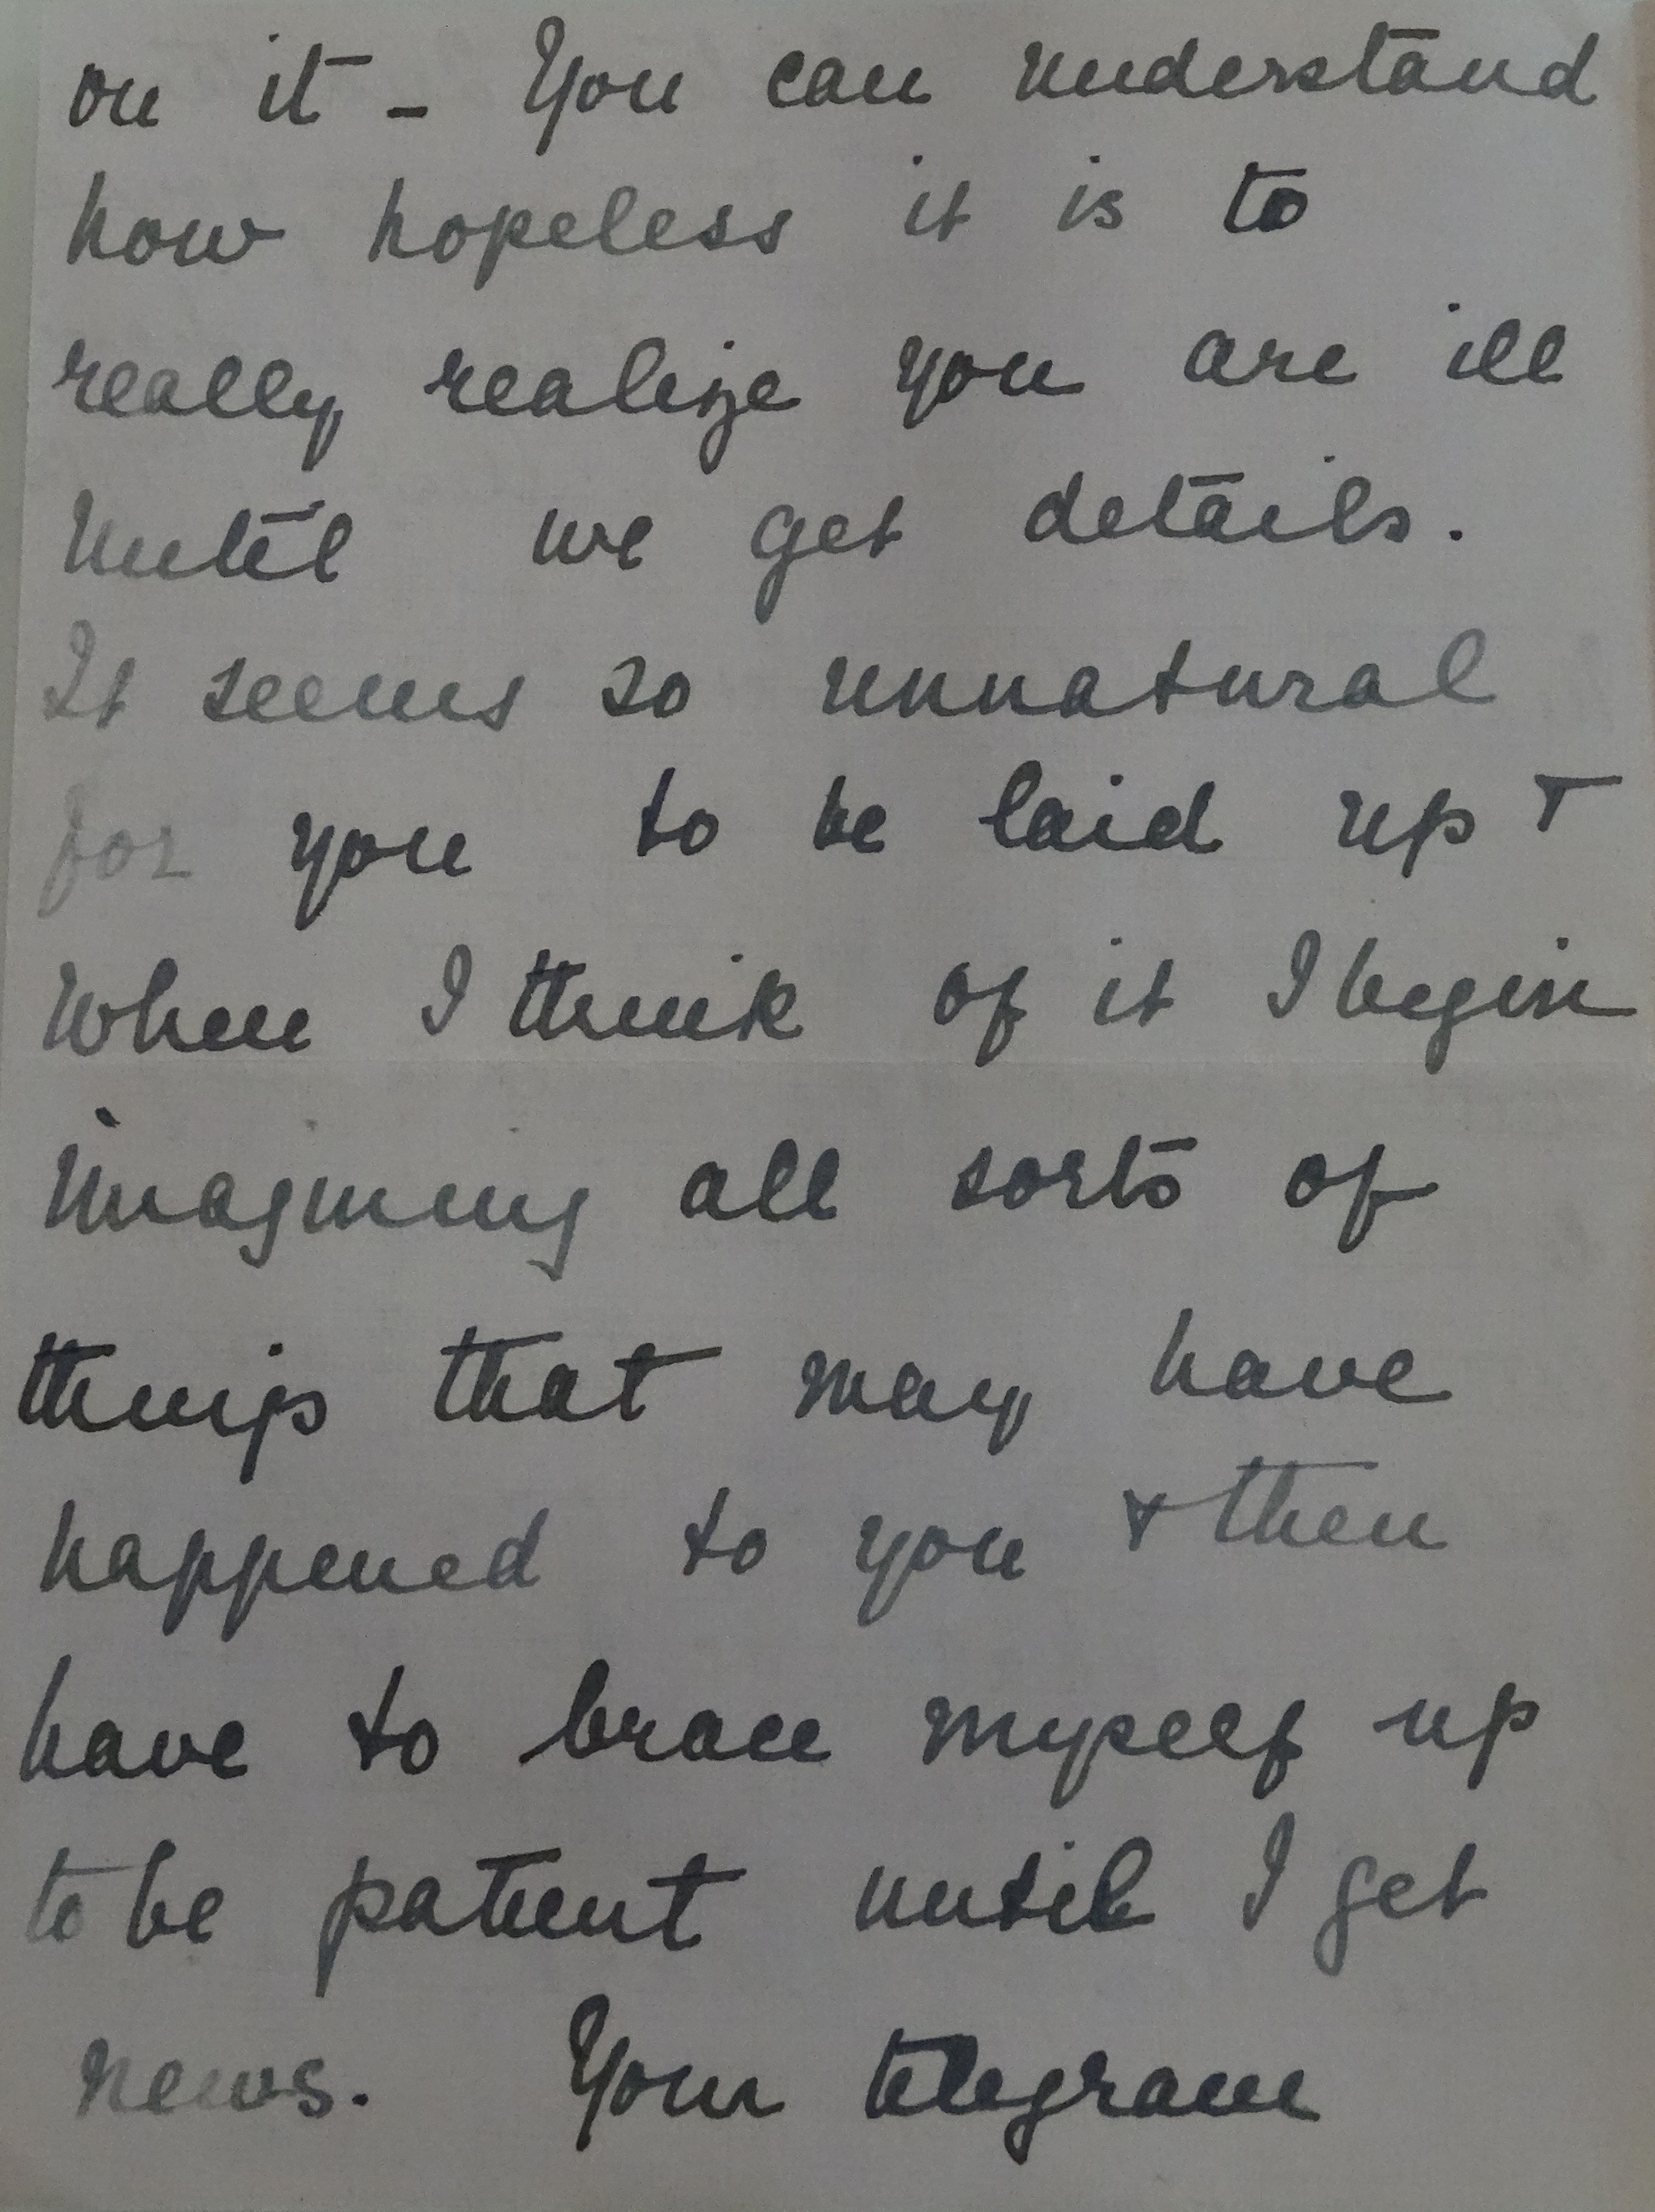 on it - You can understand
how hopeless it is to
really realize you are ill
until we get details.
It seems so unnatural
for you to be laid up +
when I think of it I begin
imagining all sorts of
things that may have
happened to you & then
have to brace myself up
to be patient until I get
news. Your telegram